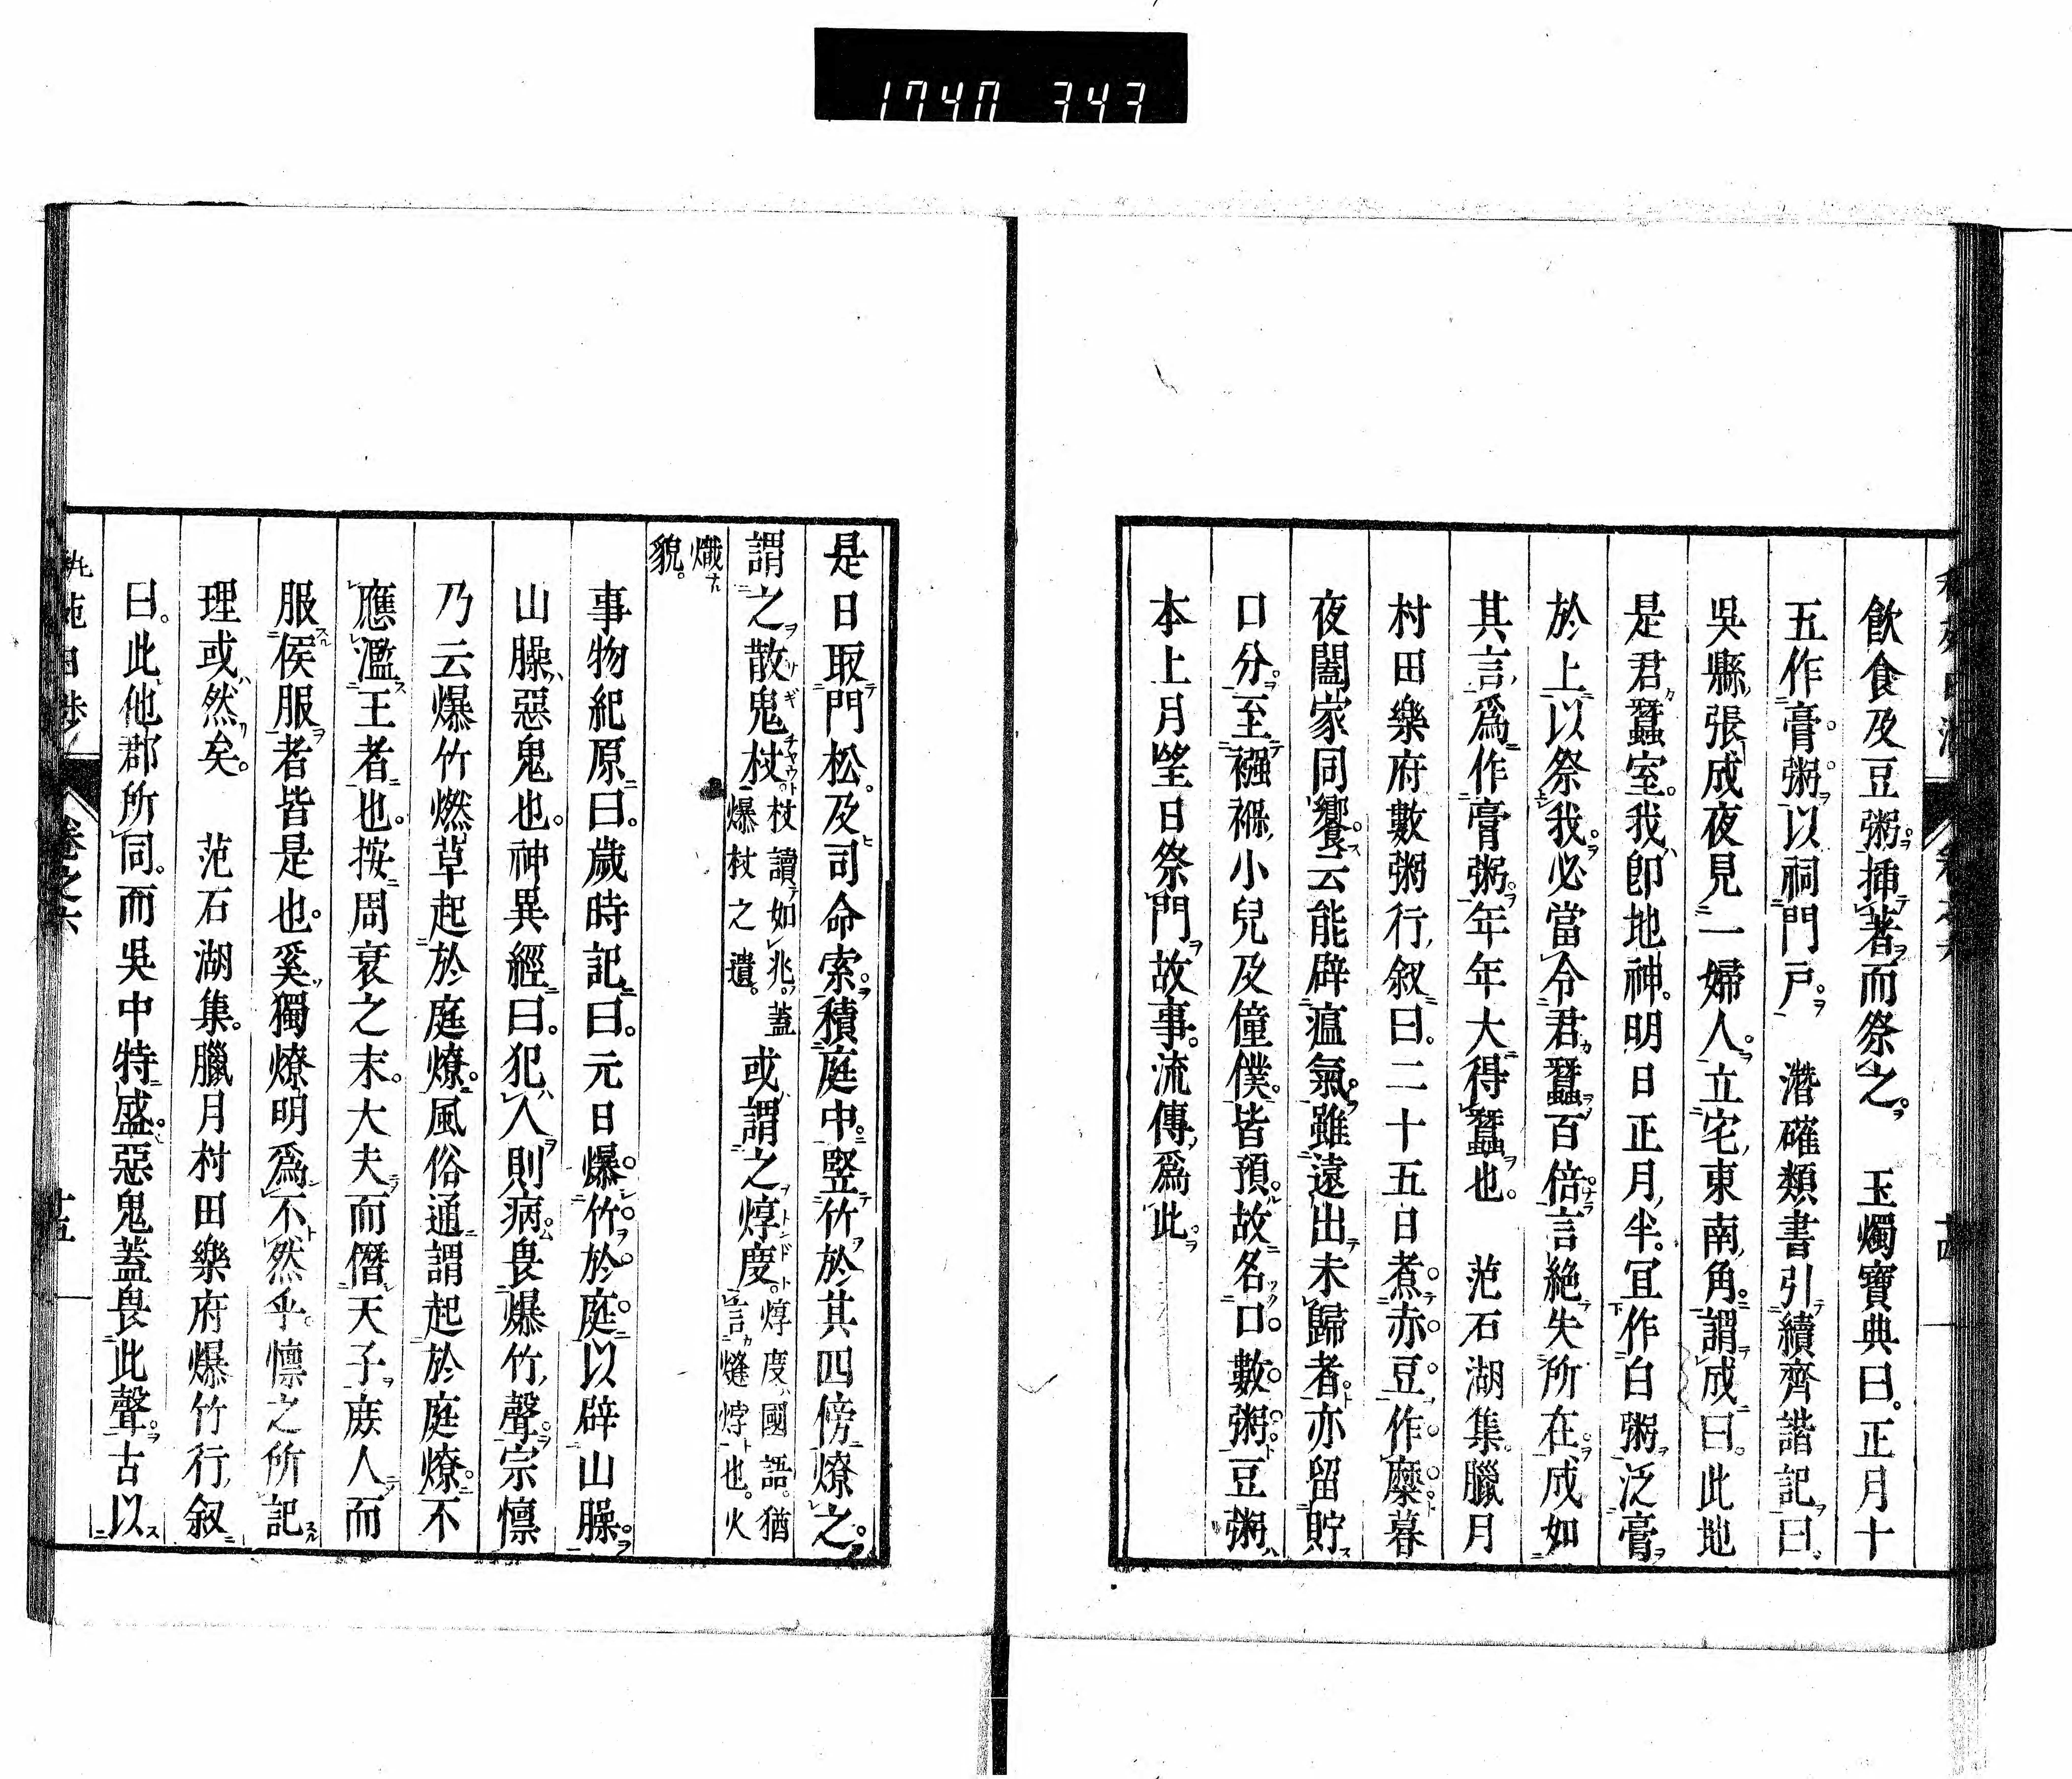 1740 343
飲食及豆粥。挿著而祭之。 玉燭寶典曰。正月十
五作膏粥以祠門戸。 潛確類書引續齊諧記曰
吳縣張成夜見一婦人。立宅東南角。謂成曰。此地
是君蠶室。我即地神。明日正月半。宜作白粥泛膏
於上以祭我。必當令君蠶百倍言絶失所在。成如
其言爲作膏粥。年年大得蠶也。 范石湖集。臘月
村田樂府數粥行叙曰。二十五日煮赤豆作糜暮
夜闔家同饗。云能辟瘟氣。雖遠出未歸者。亦留貯
口分。至襁褓小兒及僮僕。皆預。故名口數粥。豆粥
本上月望日祭門故事。流傳爲此。
是日取門松。及司命索。積庭中。竪竹於其四傍燎之。
謂之散鬼杖。杖讀如兆。蓋爆杖之遺。或謂之焞度。焞度國語。猶言燵焞也。火
熾貌。
事物紀原曰。歲時記曰。元日爆竹於庭。以辟山臊。
山臊惡鬼也。神異經曰。犯人則病。畏爆竹聲。宗懍
乃云爆竹燃草起於庭燎。風俗通謂起於庭燎。不
應濫王者也。按周衰之末。大夫而僭天子。庶人而
服侯服者皆是也。奚獨燎明爲不然乎。懍之所記
理或然矣。 范石湖集。臘月村田樂府爆竹行叙
曰。此他郡所同。而吳中特盛。惡鬼蓋畏此聲。古以
卷之六